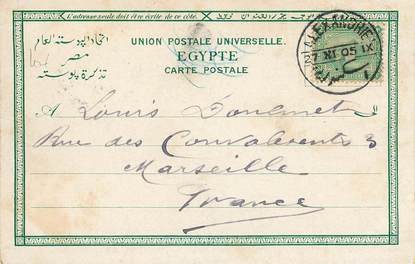 L'adresse seule doit être écrite de ce côté.
اتحاد البوستة العام
مصر
تذكرة بوستة
UNION POSTALE UNIVERSELLE.
EGYPTE
CARTE POSTALE
ALEXANDRIE
7 XI 05 IX
A Louis
Rue des Convalescents 3
Marseille
France